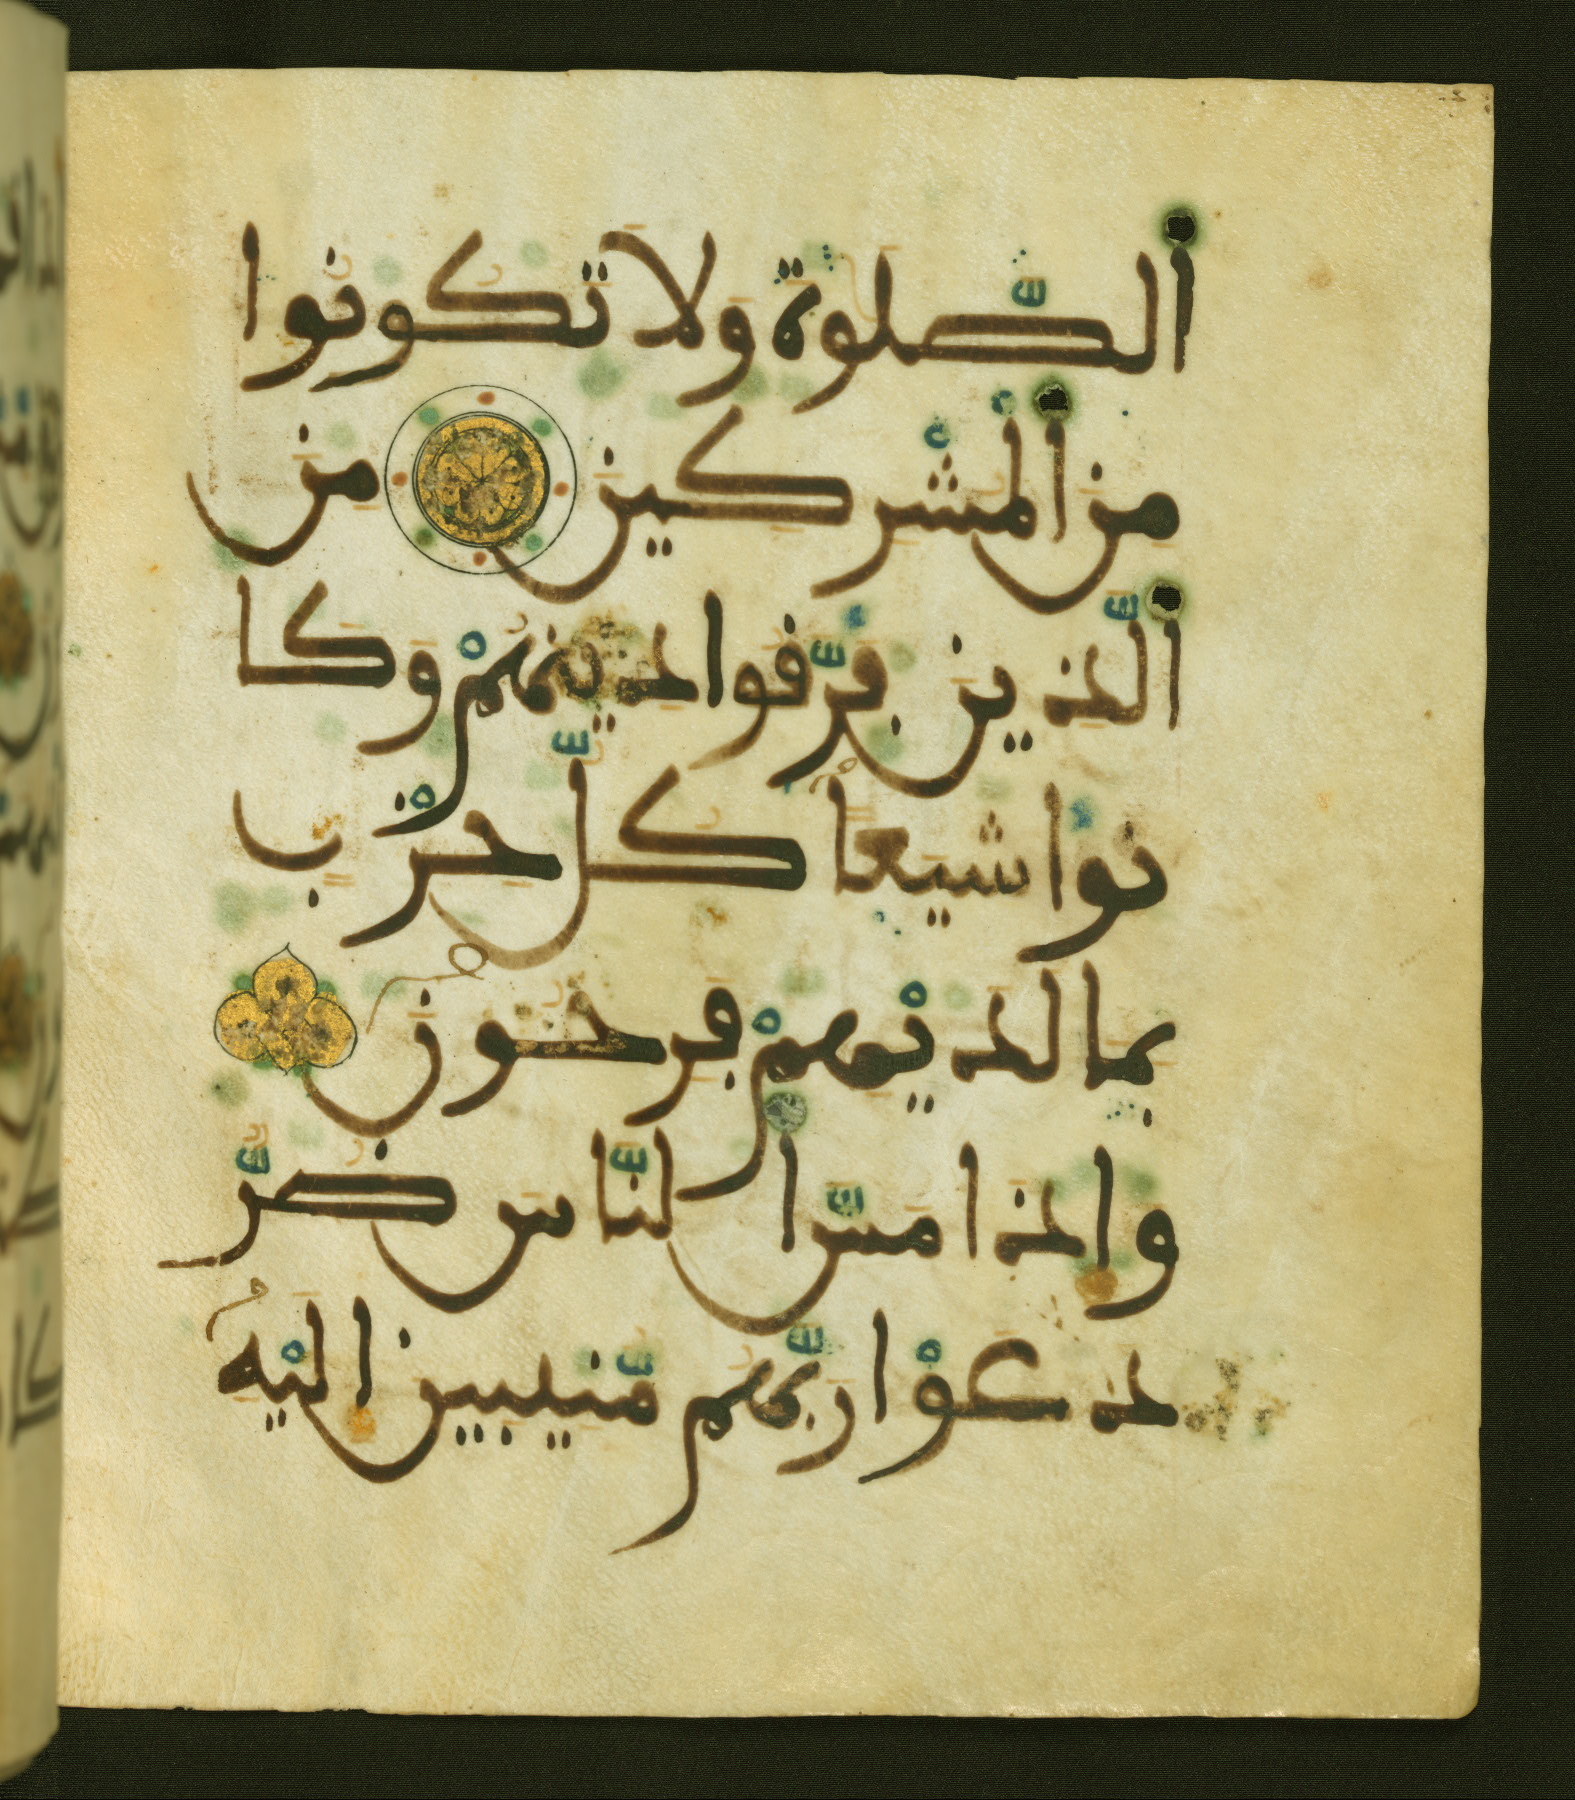 ٱلصَّلَوٰةَ وَلَا تَكُونُوا
مِنَ ٱلْمُشْرِكِينَ مِنَ
ٱلَّذِينَ فَرَّقُوا دِينَهُمْ وَكَا
نُوا شِيَعاً كُلُّ حِزْبٍ
بِمَا لَدَيْهِمْ فَرِحُونَ
وَإِذَا مَسَّ ٱلنَّاسَ ضُرٌّ
دَعَوْا رَبَّهُم مُّنِيبِينَ إِلَيْهِ